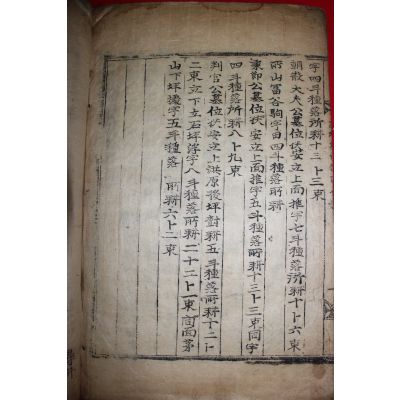 字四斗種落所耕十三卜三束
朝散大夫公墓位伏安立上面推字七斗種落所耕十卜六束
所山冨谷駒字田四斗種落所耕
束節公墓位伏安立上面推字五斗種落所耕十三卜三束同字
四斗種落所耕八卜九束
判官公墓位伏安立洪原後坪對耕五斗種落所耕十二卜
二束立下立石坪浮字八斗種落所耕二十二卜一束同面茅
山下坪優字五斗種落 所耕六卜二束